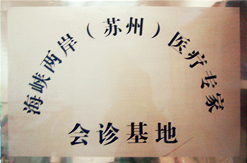 海峡两岸（苏州）医疗专家
会诊基地